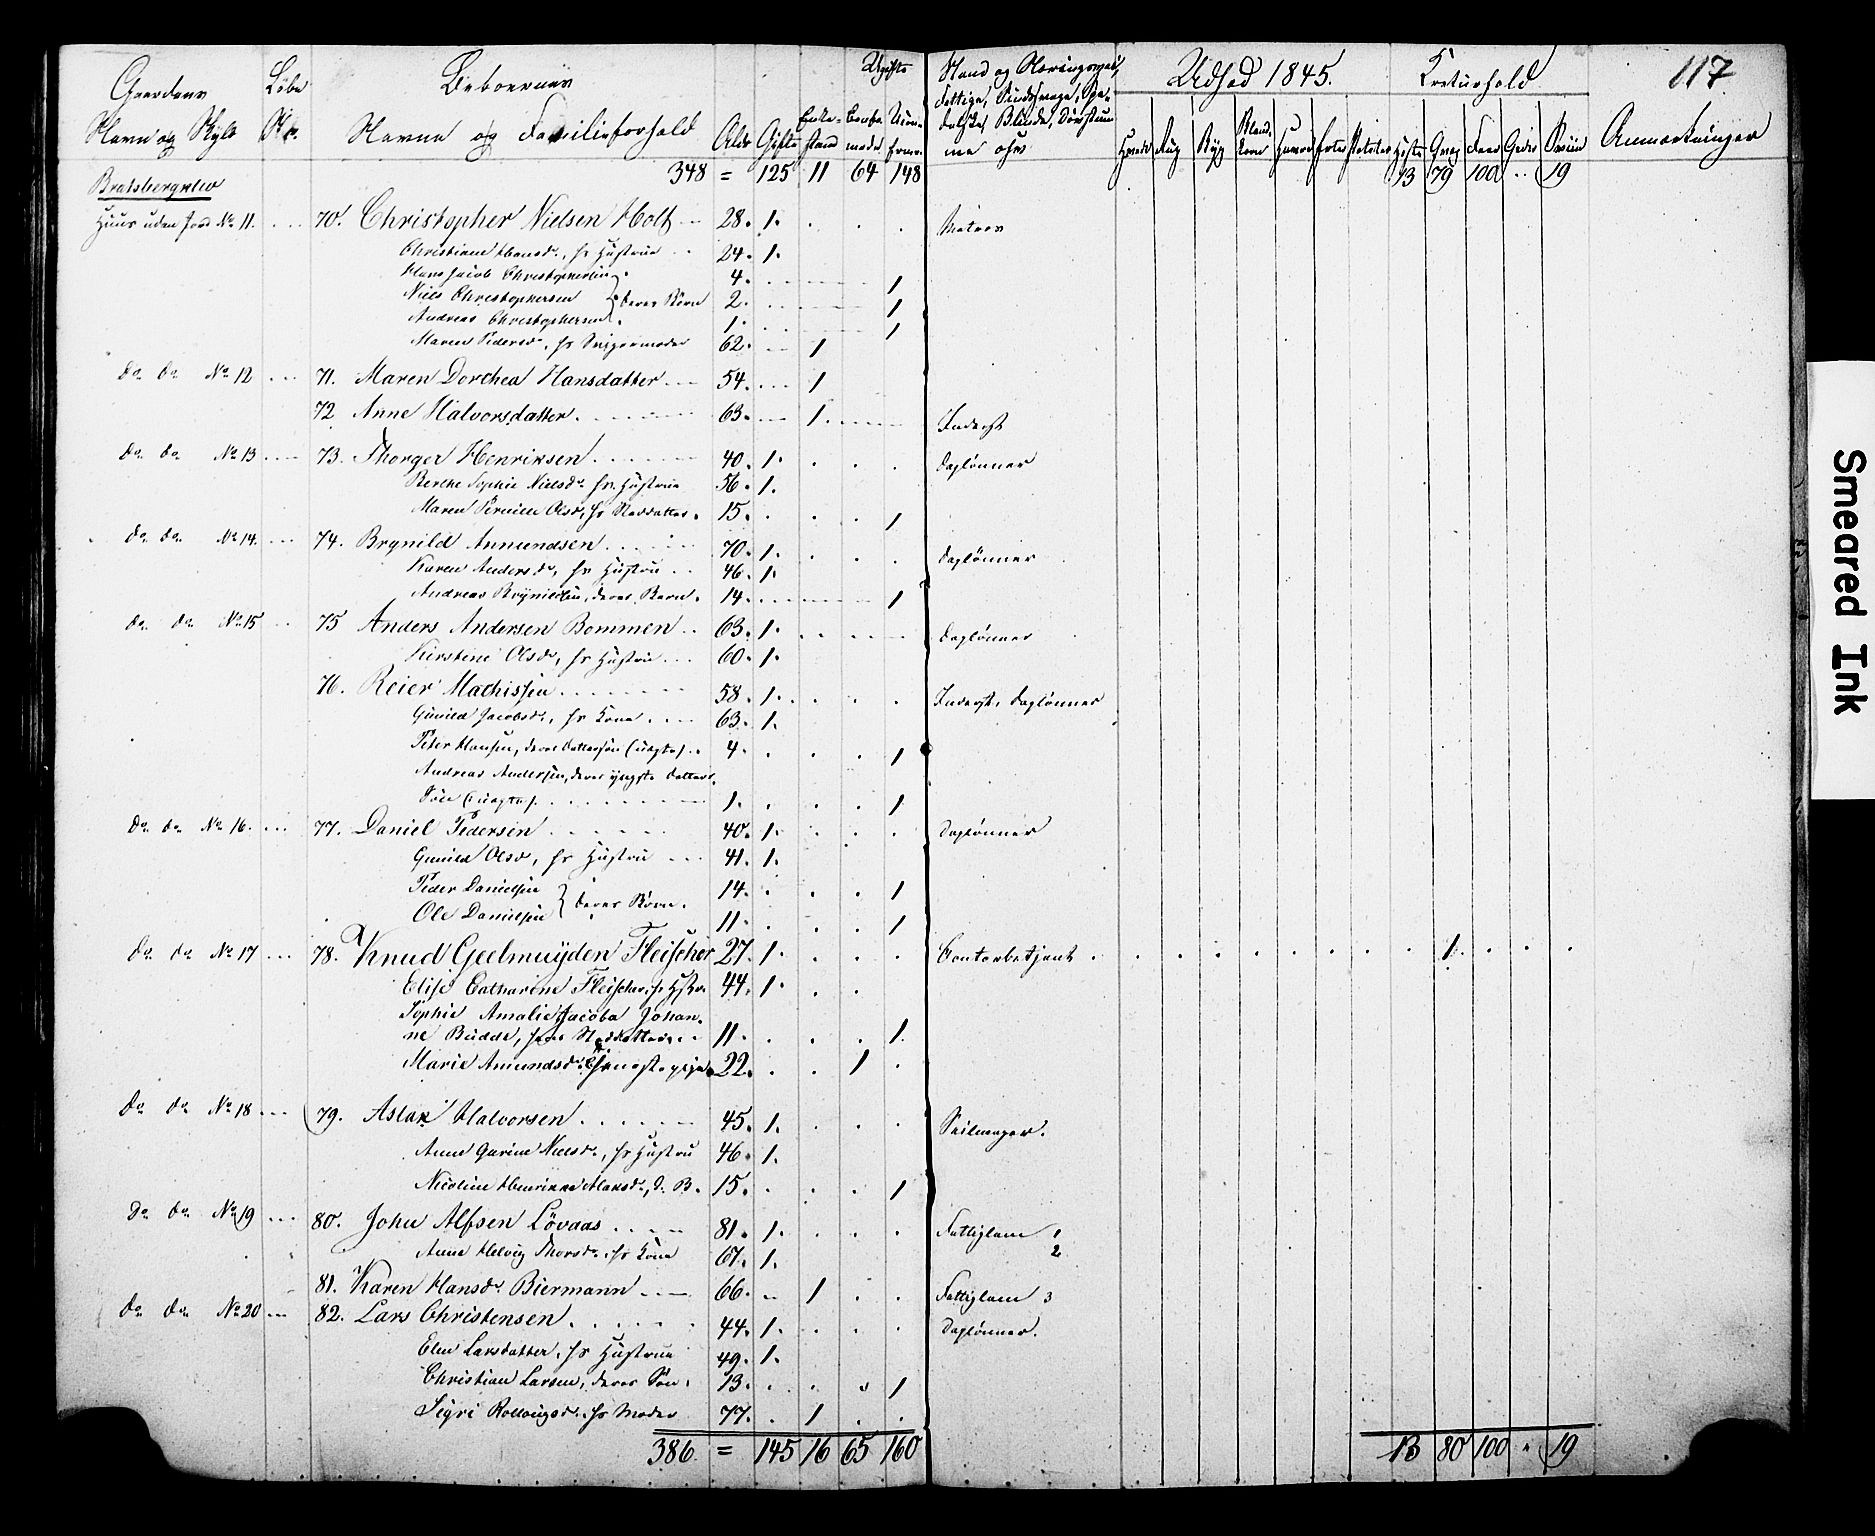 117
Gaardens Løbe Beboernes Ugifte Stand og Næringsvei, Udsæd 1845. Creaturhold
Navn og Skyld No. Navne og Familieforhold Alder Gifte Enke-stand Anmærkninger
348 = 125 11 64 148 13 79 100 .. 19
Bratsbergklev
Huus uden Jord No 11. 70. Christopher Nielsen Holt 28. 1. Matros
Christiane Hansd., hs Hustrue 24. 1.
Hans Jacob Christophersen 4. 1
Niels Christophersen } deres Børn 2. 1
Andreas Christophersen 1. 1
Maren Pedersd., hs Svigermoder 62. 1
do do No 12 71. Maren Dorthea Hansdatter 54. 1
72 Anne Halvorsdatter 63. 1. Inderst
do do No 13 73. Thorger Henriksen 40. 1. Daglønner
Berthe Sophie Nielsd. hs Hustrue 56. 1.
Maren Pernille Olsd., hs Steddatter. 15. 1
do do No 14. 74. Brynild Anmundsen 70. 1. Daglønner
Karen Andersd., hs Hustrue 46. 1.
Andreas Brynildsen, deres Barn. 14. 1
do do No 15 75 Anders Andersen Bommen 63. 1. Daglønner
Kirstine Olsd., hs Hustru 60. 1.
76. Reier Mathissen 58. 1. Inderst, Daglønner
Gunild Jacobsd., hs Kone 63. 1.
Peter Hansen, deres Dattersøn (uægte). 4. 1
Andreas Andersen, deres yngste Datters
Søn (uægte). 1. 1
do do No 16. 77. Daniel Pedersen 40. 1. Daglønner
Gunild Olsd., hs Hustru 41. 1.
Peder Danielsen 14. 1
Ole Danielsen } deres Børn. 11. 1
do do No 17 78. Knud Geelmuyden Fleischer 27. 1. Contorbetjent 1.
Elise Catharine Fleischer, hs Hstr. 44. 1.
Sophie Amalie Jacoba Johan-
ne Budde, hans Steddatter 11. 1.
Marie Amundsd. Tjenestepige 22. 1
do do No 18 79. Aslak Halvorsen 45. 1. Seilmager.
Anne Gurine Nielsd., hs Hustru 46. 1.
Nicoline Henrikka Aslaksd., d. B. 15. 1
do do No 19 80. John Alfsen Lövaas 81. 1. Fattiglem 1
Anne Helvig Thorsd., hs Kone 67. 1. 2
81. Karen Hansd. Biermann 66. 1 Fattiglem 3
do do No 20 82. Lars Christensen 44. 1. Daglønner.
Elen Larsdatter, hs Hustrue 49. 1.
Christian Larsen, deres Søn. 13. 1
Sigri Rolleivsd., hs Moder 77. 1
386 = 145 16 65 160 13 80 100 " 19
Smeared Ink